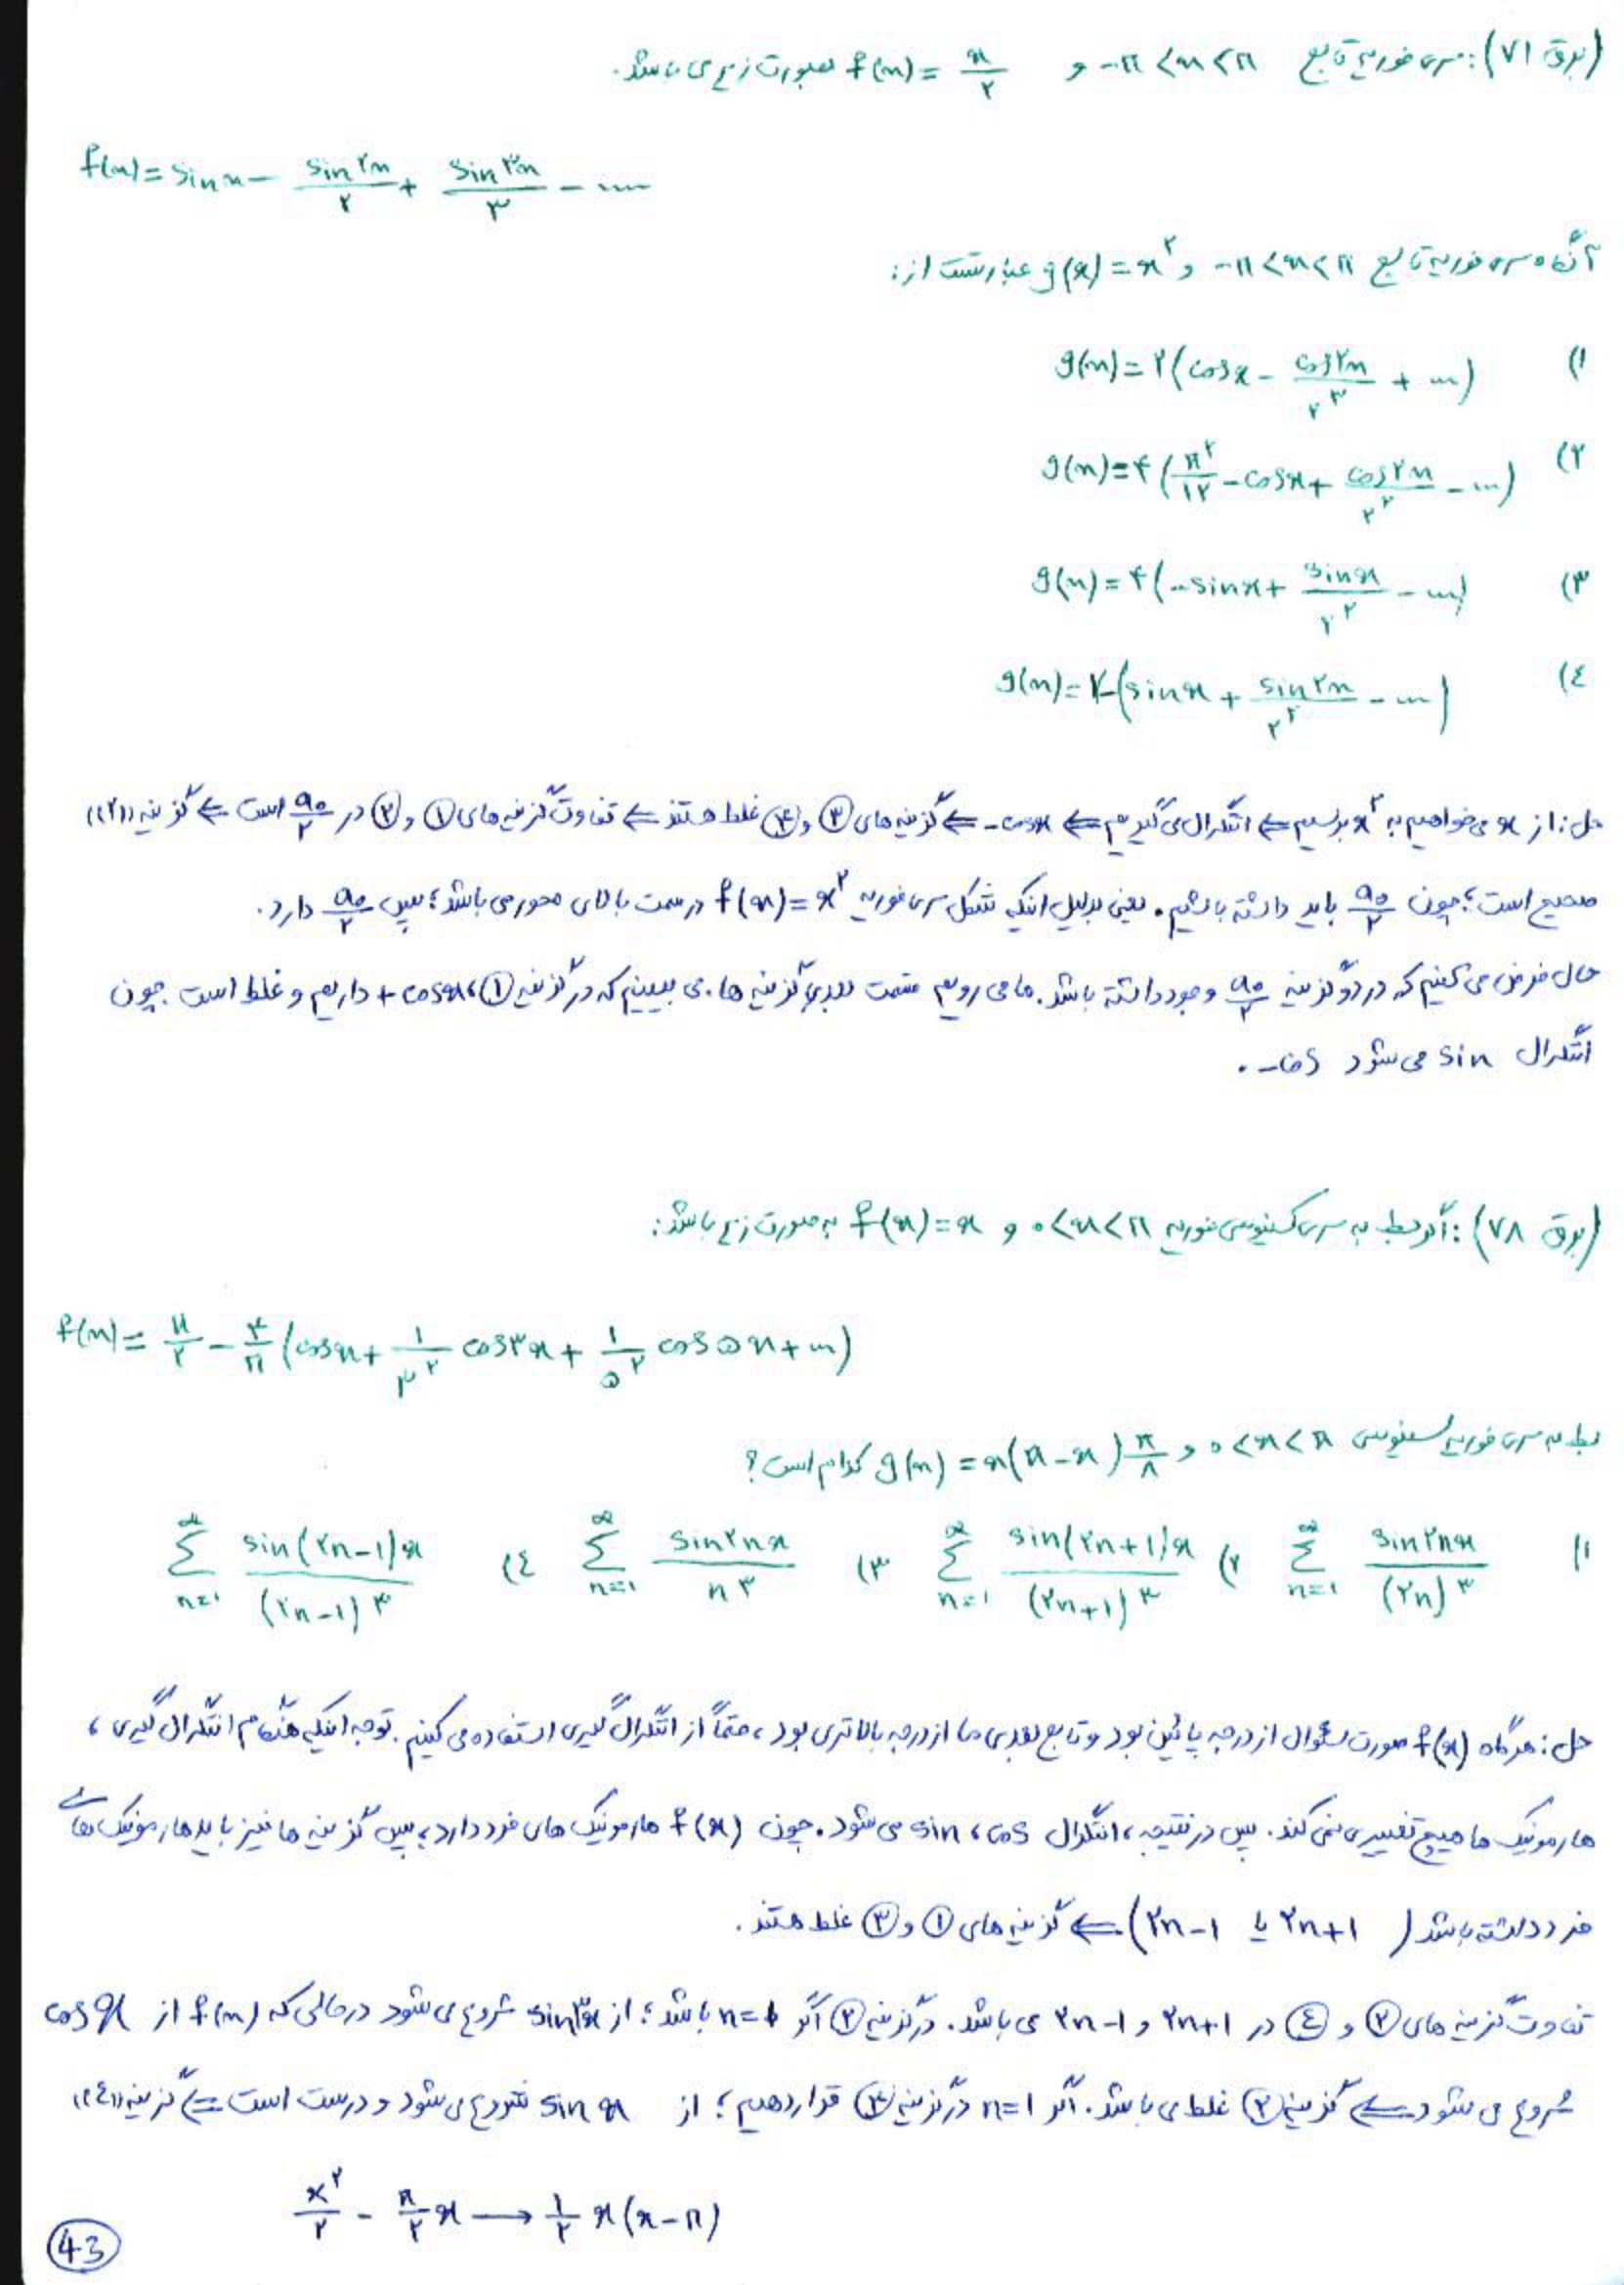 (برق ۷۱): سری فوریه تابع -π < x < π و f(x) = x/۲ بصورت زیر می باشد.
f(x) = sin x - sin ۲x/۲ + sin ۳x/۳ - ....
آنگاه سری فوریه تابع -π < x < π و g(x) = x^۲ عبارتست از:
۱) g(x) = ۲(cos x - cos ۲x/۲^۳ + ...)
۲) g(x) = ۴(π^۲/۱۲ - cos x + cos ۲x/۲^۲ - ...)
۳) g(x) = ۴(-sin x + sin x/۲^۲ - ...)
۴) g(x) = ۲(sin x + sin ۲x/۲^۲ - ...)
حل: از x می خواهیم به x^۲ برسیم ⇐ انتگرال می گیریم ⇐ -cos x ⇐ گزینه های ③ و ④ غلط هستند ⇐ تفاوت گزینه های ① و ② در a₀/۲ است ⇐ گزینه «۲»
صحیح است؛ چون a₀/۲ باید داشته باشیم. یعنی بدلیل اینکه شکل سری فوریه f(x) = x^۲ در سمت بالای محور می باشد؛ پس a₀/۲ دارد.
حال فرض می کنیم که در دو گزینه a₀/۲ وجود داشته باشد. ما می رویم قسمت بعدی گزینه ها. می بینیم که در گزینه ①، +cos x داریم و غلط است. چون
انتگرال sin می شود -cos.
(برق ۷۸): اگر بسط به سری کسینوسی فوریه ۰ < x < π و f(x) = x به صورت زیر باشد:
f(x) = π/۲ - ۴/π (cos x + ۱/۳^۲ cos ۳x + ۱/۵^۲ cos ۵x + ...)
بسط به سری فوریه سینوسی ۰ < x < π و g(x) = x(π - x) π/۸ کدام است؟
۱) ∑_{n=1}^{∞} sin ۲nx/(۲n)^۳ ۲) ∑_{n=1}^{∞} sin(۲n+۱)x/(۲n+۱)^۳ ۳) ∑_{n=1}^{∞} sin ۲nx/n^۳ ۴) ∑_{n=1}^{∞} sin(۲n-۱)x/(۲n-۱)^۳
حل: هرگاه f(x) صورت سئوال از درجه پائین بود و تابع بعدی ما از درجه بالاتری بود، حتماً از انتگرال گیری استفاده می کنیم. توجه اینکه هنگام انتگرال گیری،
هارمونیک ها هیچ تغییری نمی کند. پس در نتیجه، انتگرال cos، sin می شود. چون f(x) هارمونیک های فرد دارد؛ پس گزینه ها نیز باید هارمونیک های
فرد داشته باشد (۲n+۱ یا ۲n-۱) ⇐ گزینه های ① و ③ غلط هستند.
تفاوت گزینه های ② و ④ در ۲n+۱ و ۲n-۱ می باشد. در گزینه ② اگر n=۱ باشد؛ از sin ۳x شروع می شود در حالی که f(x) از cos x
شروع می شود ⇐ گزینه ② غلط می باشد. اگر n=۱ در گزینه ④ قرار دهیم؛ از sin x شروع می شود و درست است ⇐ گزینه «۴»
x^۲/۲ - π/۲ x ⟶ ۱/۲ x(x - π)
43